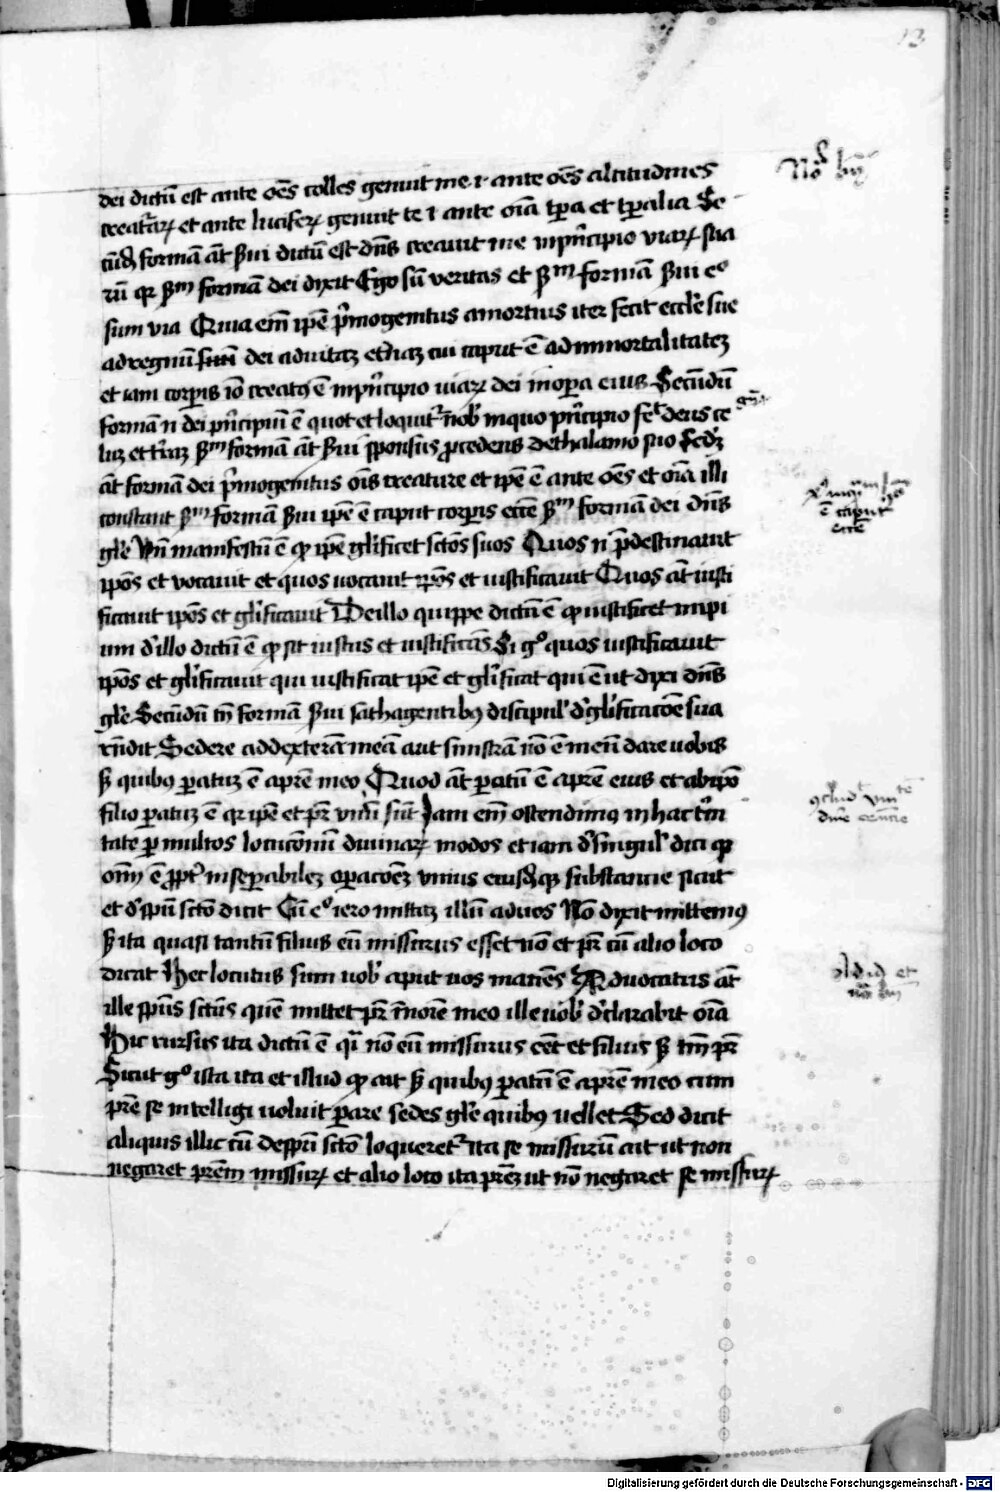 13
dei dictū est ante oēs colles genuit me ⁊ ante oēs altitudines
creaturaꝝ et ante luciferꝝ genuit te ⁊ ante oīa tꝑa et tꝑalia Se
cūdꝫ formā āt ẜui dictū est dn̄s creauit me in pⁱncipio viaꝝ sua
rū qꝛ ẜᵐ formā dei dixit Ego sū veritas et ẜᵐ formā ẜui e°
sum via Quia em̄ ip̄e pⁱmogenitus a mortuis iter fecit eccl̄e sue
ad regnū dei ad uitaꝫ et̄naꝫ cui caput ē ad inmortalitateꝫ
et iam corꝑis iō creatꝰ ē in pⁱncipio uiaꝝ dei in oꝑa eius Secūdū
formā n̄ dei pⁱncipiū ē quot et loquitᷣ nob̄ in quo pⁱncipio fecᵗ deus ce
luꝫ et t̄raꝫ ẜᵐ formā āt ẜui sponsus ꝓcedens de thalamo suo Sꝫ
āt formā dei pⁱmogenitus oīs creature et ip̄e ē ante oēs et oīa illi
constant ẜᵐ formā ẜui ip̄e ē caput corꝑis ecc̄e ẜᵐ formā dei dn̄s
gl̄e Vn̄ manifestū ē ꝙ ip̄e gl̄ificet sctōs suos Quos n̄ p̄destinauit
ip̄os et vocauit et quos uocauit ip̄os et iustificauit Quos āt iusti
ficauit ip̄os et gl̄ificauit De illo quippe dictū ē ꝙ iustificet impi
um d̄ illo dictū ē ꝙ sit iustus et iustificās Si g° quos iustificauit
ip̄os et gl̄ificauit qui iustificat ip̄e et gl̄ificat qui ē ut dixi dn̄s
gl̄e Secūdū tn̄ formā ẜui sathagentibꝰ discipul̄ d̄ gl̄ificacōe sua
rn̄dit Sedere ad dexterā meā aut sinistrā nō ē meū dare uobis
ẜ quibꝰ ꝑatuꝫ ē a pr̄e meo Quod āt ꝑatū ē a pr̄e eius et ab ip̄o
filio ꝑatuꝫ ē qꝛ ip̄e et pr̄ vnū sūt Iam em̄ ostendimꝰ in hac t̄ni
tate ꝑ multos locucōnū diuinaꝝ modos et iam d̄ singul̄ dici qꝫ
om̄ ē ꝓpt̄ inseꝑabileꝫ oꝑacōeꝫ vnius eiusdēqꝫ substancie sicut
et d̄ spū sctō dicit Cū e° iero mittaꝫ illū ad uos Nō dixit mittemꝰ
ẜ ita quasi tantū filius eū missurus esset nō et pr̄ cū alio loco
dicat Hec locutus sum uob̄ aput uos manēs Aduocatus āt
ille spūs sctūs quē mittet pr̄ ī noīe meo ille uob̄ d̄clarabit oīa
Hic rursus ita dictū ē qⁱ nō eū missurus eēt et filius ẜ tm̄ pr̄
Sicut g° ista ita et illud ꝙ ait ẜ quibꝰ ꝑatū ē a pr̄e meo cum
pr̄e se intelligi uoluit ꝑare sedes gl̄e quibꝰ uellet Sed dicit
aliquis illic cū de spū sctō loqueretᷣ ita se missurū ait ut non
negaret pr̄em missuꝝ et alio loco ita pr̄eꝫ ut nō negaret se missuꝝ
Nō bn̄
ē caput
ecc̄e
Digitalisierung gefördert durch die Deutsche Forschungsgemeinschaft - DFG